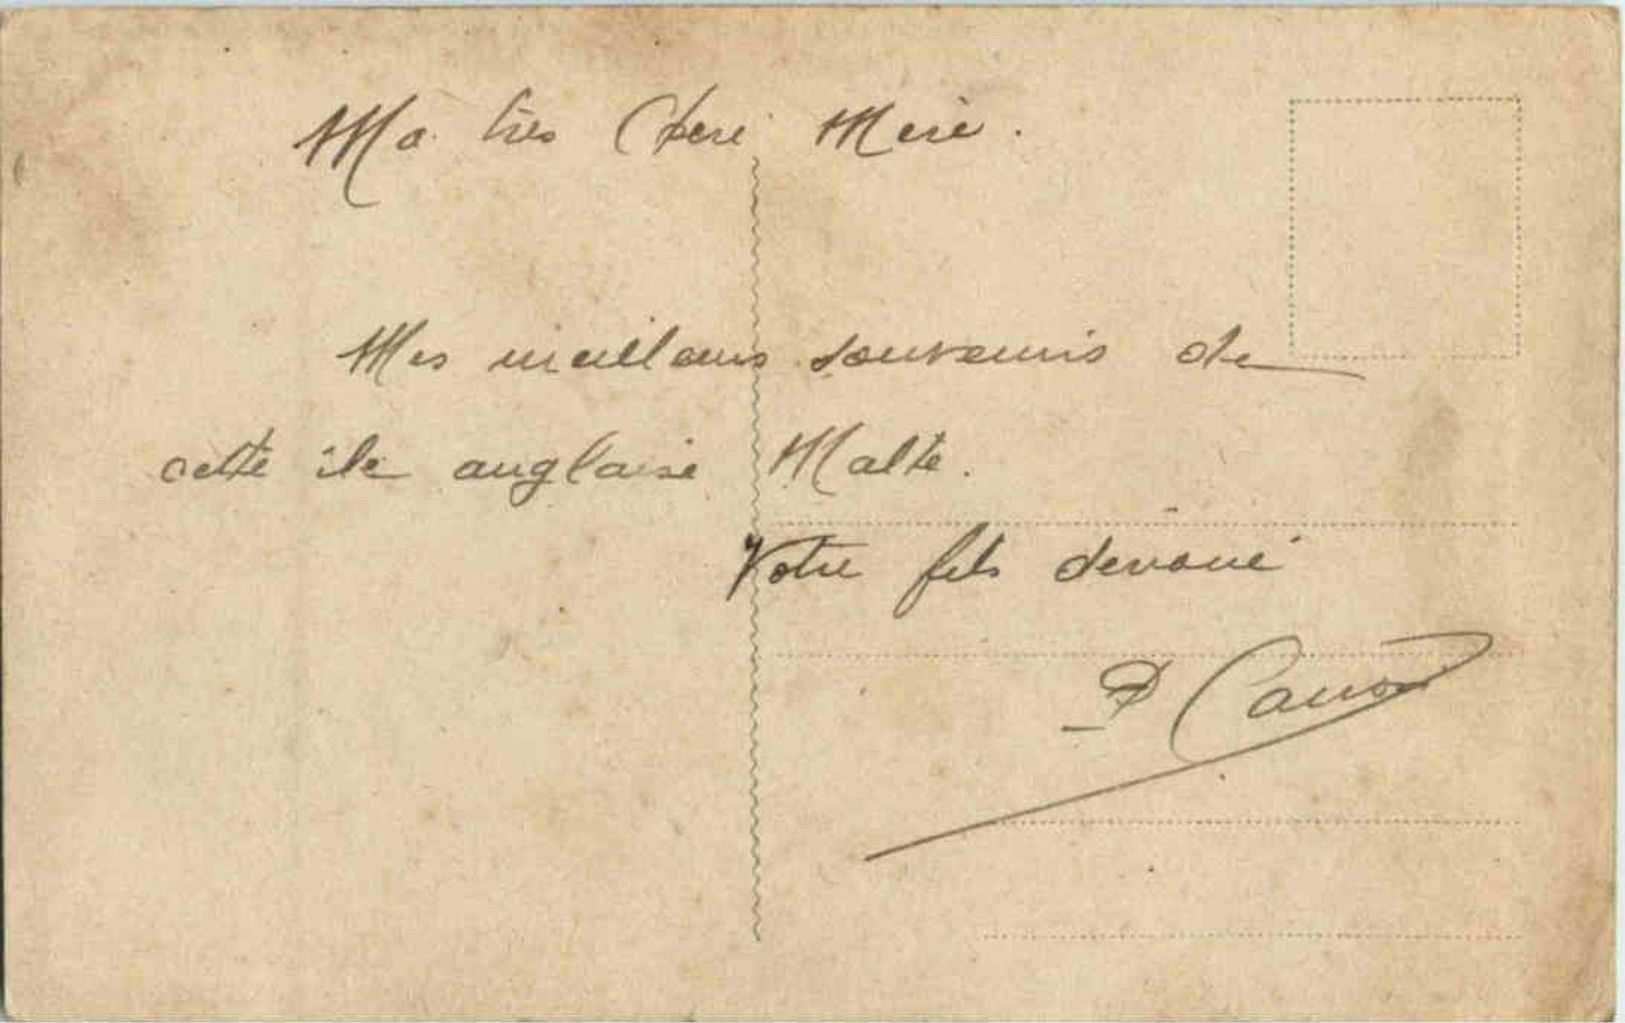 Ma très Chère Mère.
Mes meilleurs souvenirs de
cette île anglaise Malte.
Votre fils devoué